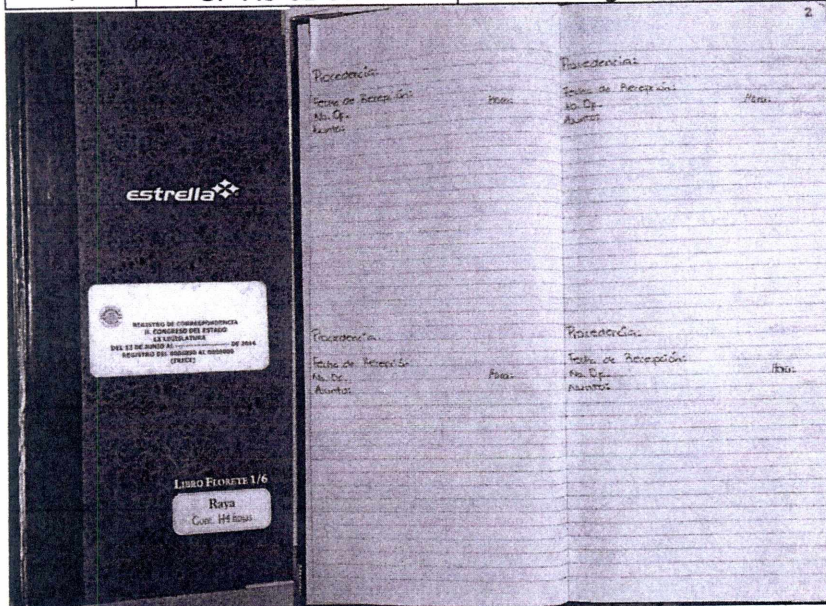 estrella
REGISTRO DE CORRESPONDENCIA
H. CONGRESO DEL ESTADO
LX LEGISLATURA
DEL 13 DE JUNIO AL DE 2014
REGISTRO DEL AL
(TRECE)
LIBRO FLORETE 1/6
Raya
Cont. hojas
2
Procedencia:
Fecha de Recepción: Hora:
No. Of.
Asunto:
Procedencia:
Fecha de Recepción: Hora:
No. Of.
Asunto:
Procedencia:
Fecha de Recepción: Hora:
No. Of.
Asunto:
Procedencia:
Fecha de Recepción: Hora:
No. Of.
Asunto: